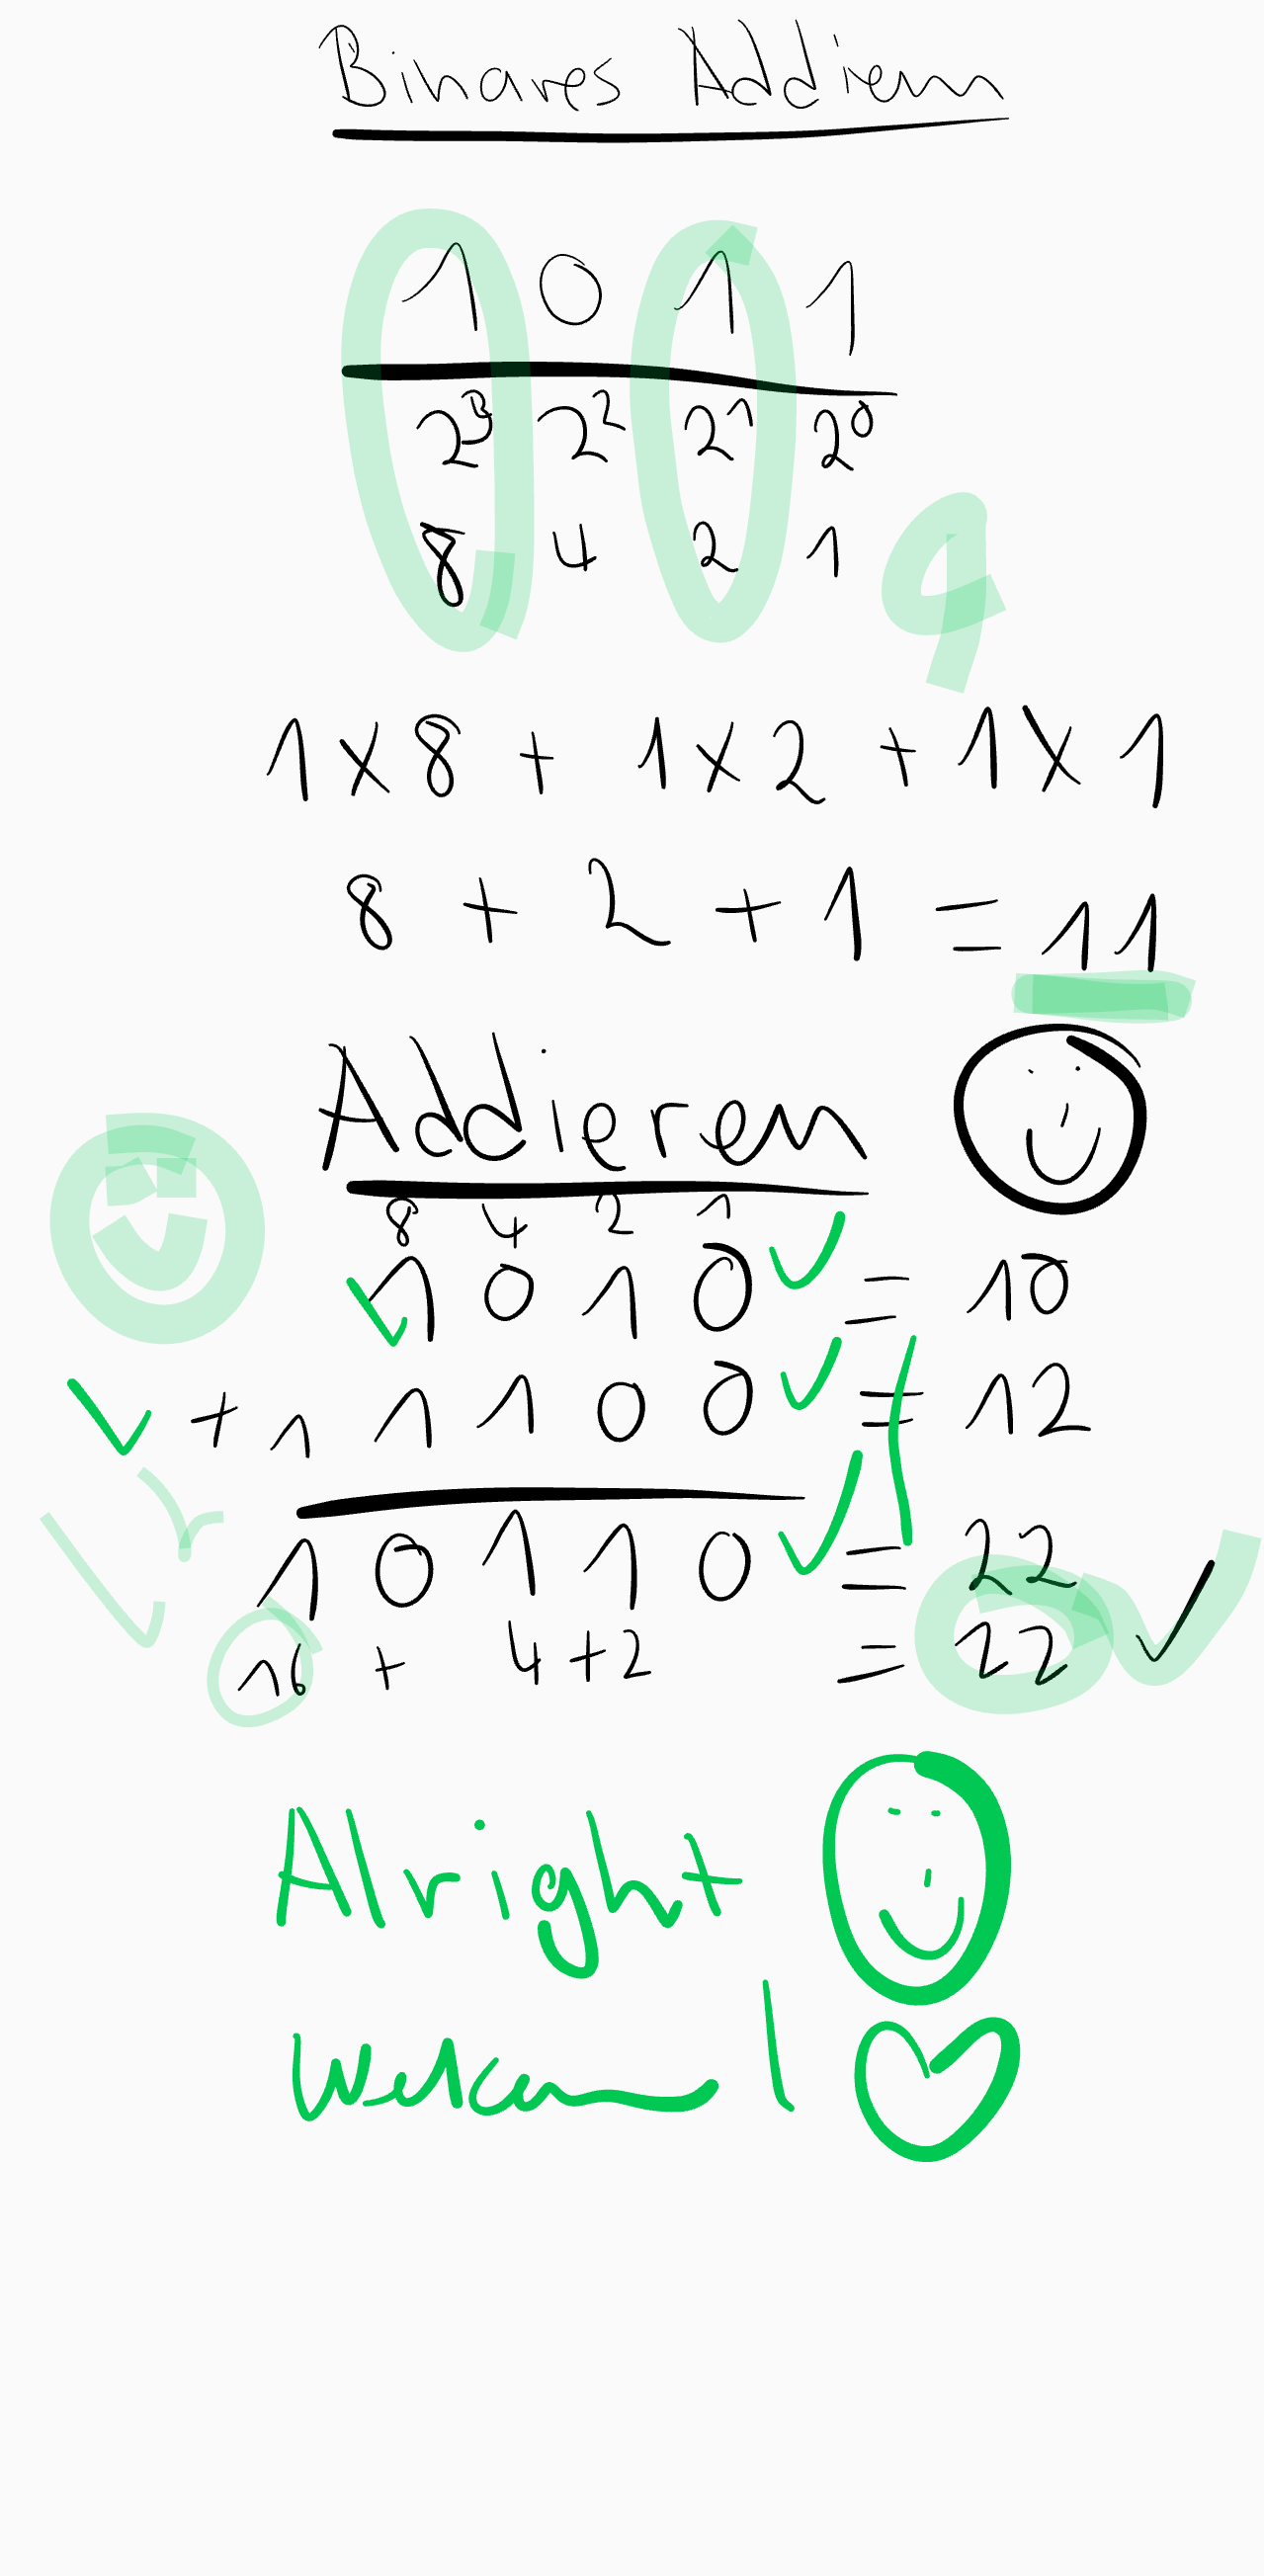 Binäres Addieren
1 0 1 1
2³ 2² 2¹ 2⁰
8 4 2 1
9
1 x 8 + 1 x 2 + 1 x 1
8 + 2 + 1 = 11
Addieren
8 4 2 1
1 0 1 0 = 10
+ 1 1 1 0 0 = 12
1 0 1 1 0 = 22
16 + 4 + 2 = 22
Alright